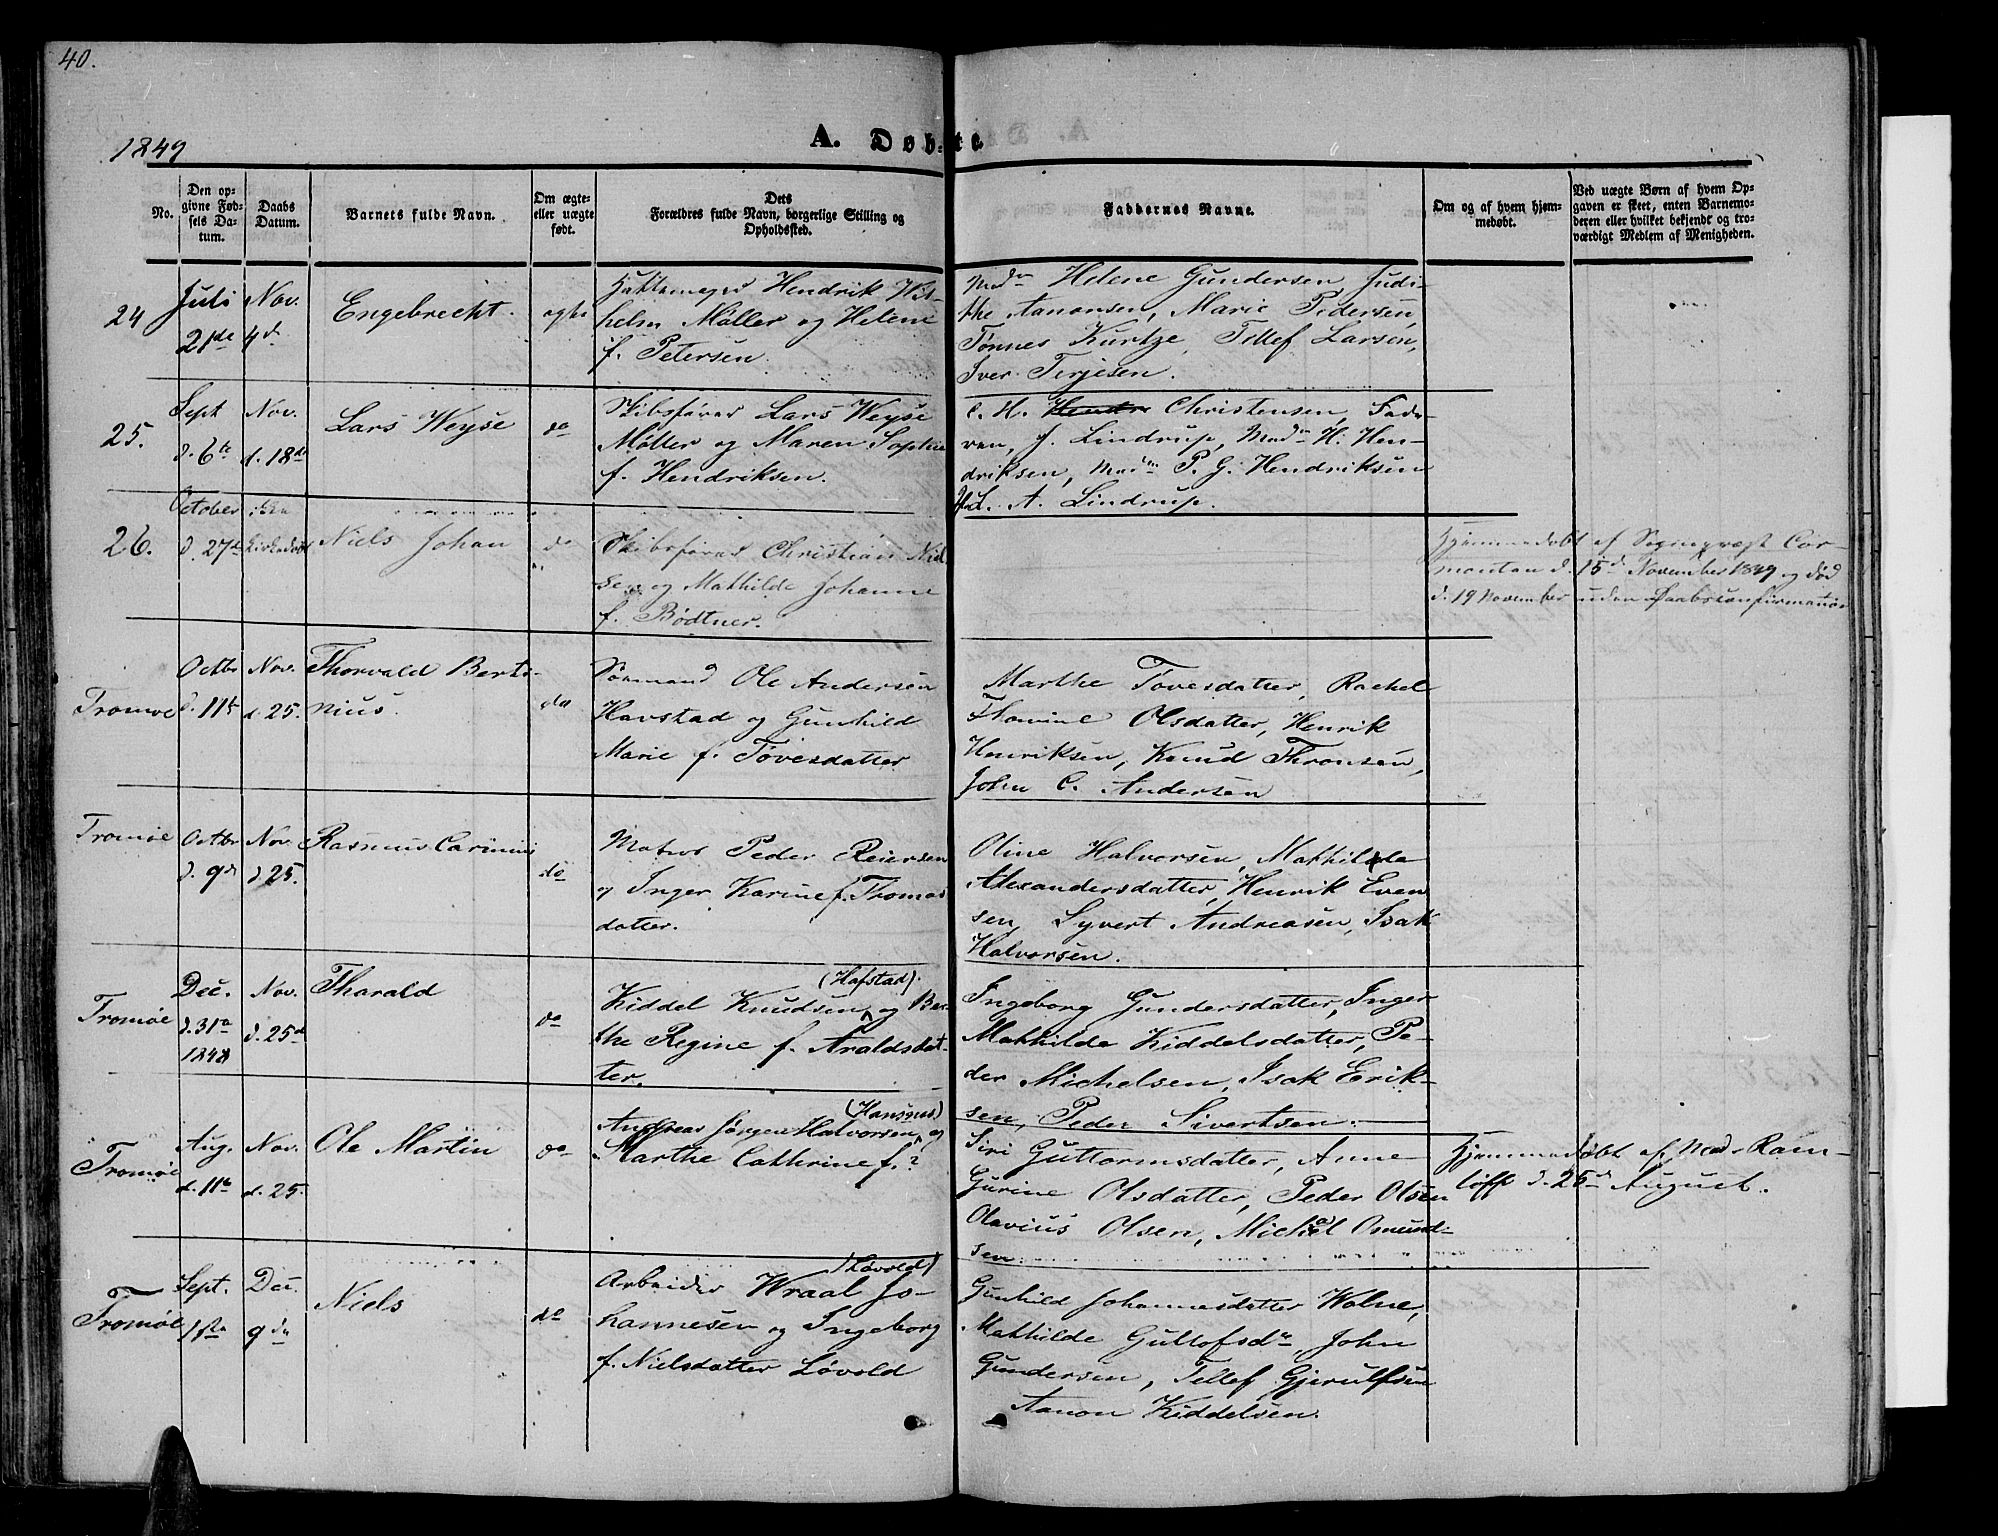 40.
1849
A. Døbte.
No.
Den op-
givne Fød-
sels Da-
tum.
Daabs
Datum.
Barnets fulde Navn.
Om ægte-
eller uægte
født.
Dets
Forældres fulde Navn, borgerlige Stilling og
Opholdssted.
Faddernes Navne.
Om og af hvem hjem-
medøbt.
Ved uægte Børn af hvem Op-
gaven er skeet, enten Barnemo-
deren eller hvilket bekjendt og tro-
værdigt Medlem af Menigheden.
24
Juli
21de
Nov.
4d
Engebrecht.
ægte
Hattemager Hendrik Wil-
helm Møller og Helene
f. Petersen.
Madm Helene Gundersen, Judi-
the Aanonsen, Marie Pedersen,
Tønnes Kurtze, Tellef Larsen,
Iver Terjesen.
25.
Sept
d. 6te
Nov.
d. 18de
Lars Weyse
do
Skibsfører Lars Weyse
Møller og Maren Sophie
f. Hendriksen.
C. H. Hendr Christensen, Fade-
ren, J. Lindrup, Madm H. Hen-
driksen, Madm P. G. Hendriksen
A. Lindrup.
26.
October
d. 27de
ikke
Kirkedøbt
Niels Johan
do
Skibsfører Christian Niel-
sen og Mathilde Johanne
f. Bødtner.
Hjemmedøbt af Sognepræst Cor-
montan d. 15d November 1849 og død
d. 19 November uden Daabsconfirmation
Tromøe
Octbr
d. 11te
Nov.
d. 25.
Thorvald Berti-
nius.
do
Sømand Ole Andersen
Havstad og Gunhild
Marie f. Tovesdatter
Marthe Tovesdatter, Rachel
Thomine Olsdatter, Henrik
Henriksen, Knud Thronsen,
John C. Andersen
Tromøe
Octbr
d. 9de
Nov.
d 25.
Rasmus Carinius
do
Matros Peder Reiersen
og Inger Karine f. Thomas
datter.
Oline Halvorsen, Mathilde
Alexandersdatter, Henrik Even
sen, Syvert Andreasen, Isak
Halvorsen.
Tromøe
Dec.
d. 31te
1848
Nov.
d. 25d
Tharald
do
(Hafstad).
Kiddel Knudsen og Ber-
the Regine f. Araldsdat-
ter.
Ingeborg Gundersdatter, Inger
Mathilde Kiddelsdatter, Pe-
der Michelsen, Isak Erik-
sen, Peder Sivertsen.
Tromøe
Aug.
d. 11te
Nov.
d. 25.
Ole Martin
do
Andreas Jørgen Halvorsen og
Marthe Cathrine f. ?
Siri Guttormsdatter, Anne
Gurine Olsdatter, Peder Olsen
Olavius Olsen, Michael Omund-
sen
Hjemmedøbt af Mad. Ram-
løff d. 25d August.
Tromøe
Sept.
1ste
Dec.
9de
Niels
do
(Løvold)
Arbeider Wraal Jo-
hannesen og Ingeborg
f. Nielsdatter Løvold
Gunhild Johannesdatter Wolne,
Mathilde Gullofsdr, John
Gundersen, Tellef Gjerulfsen
Aanon Kiddelsen.